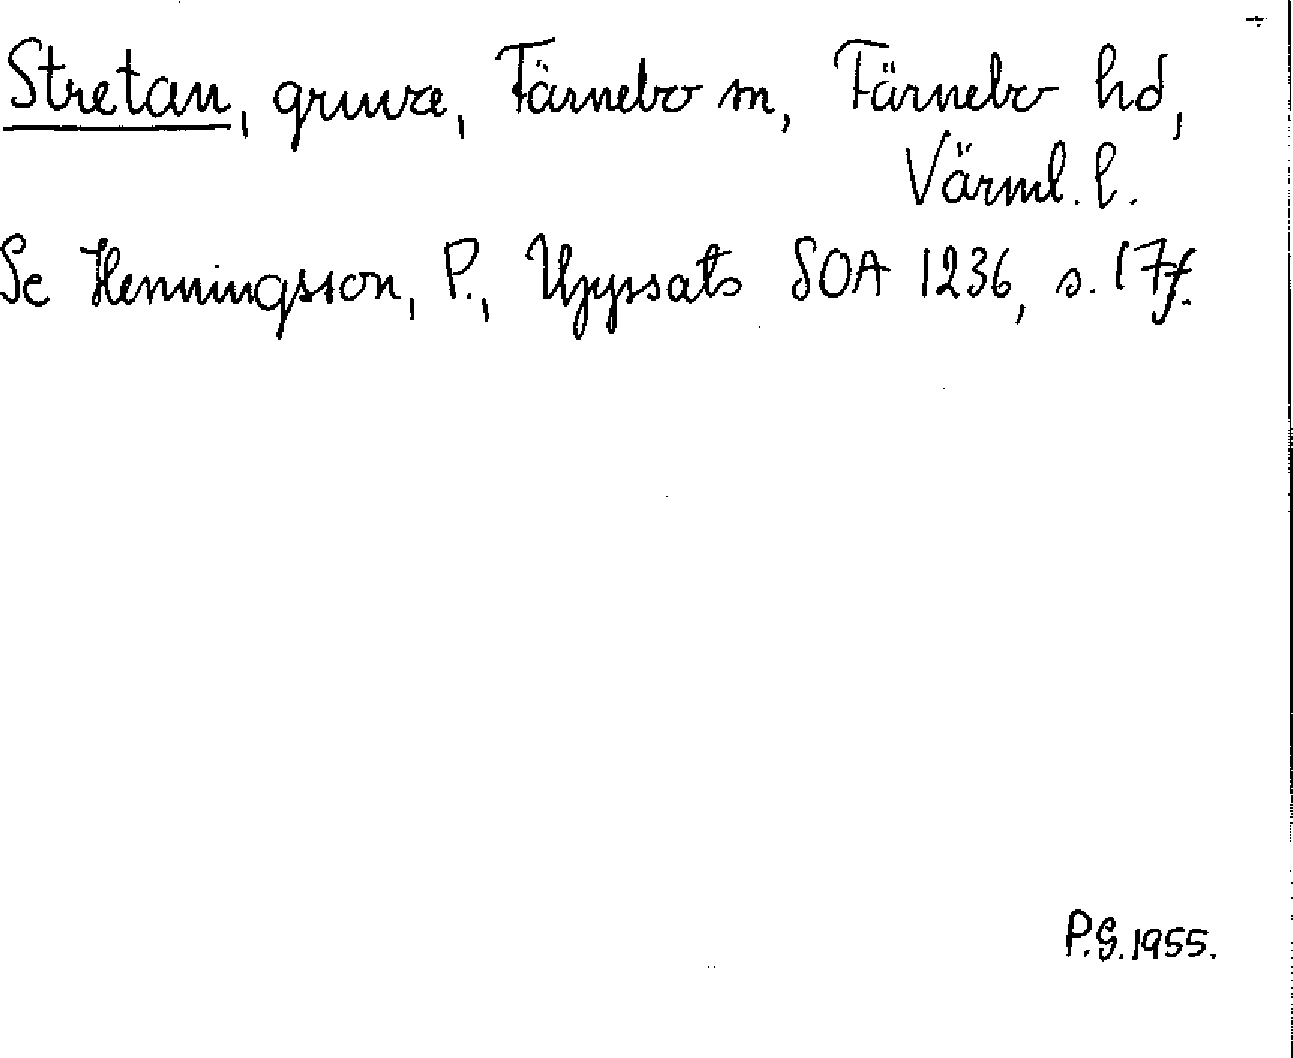 Stretan, gruva, Färnebo sn, Färnebo hd,
Värml. l.
Se Henningsson, P., Uppsats SOA 1236, s. 17f.
P.G. 1955.